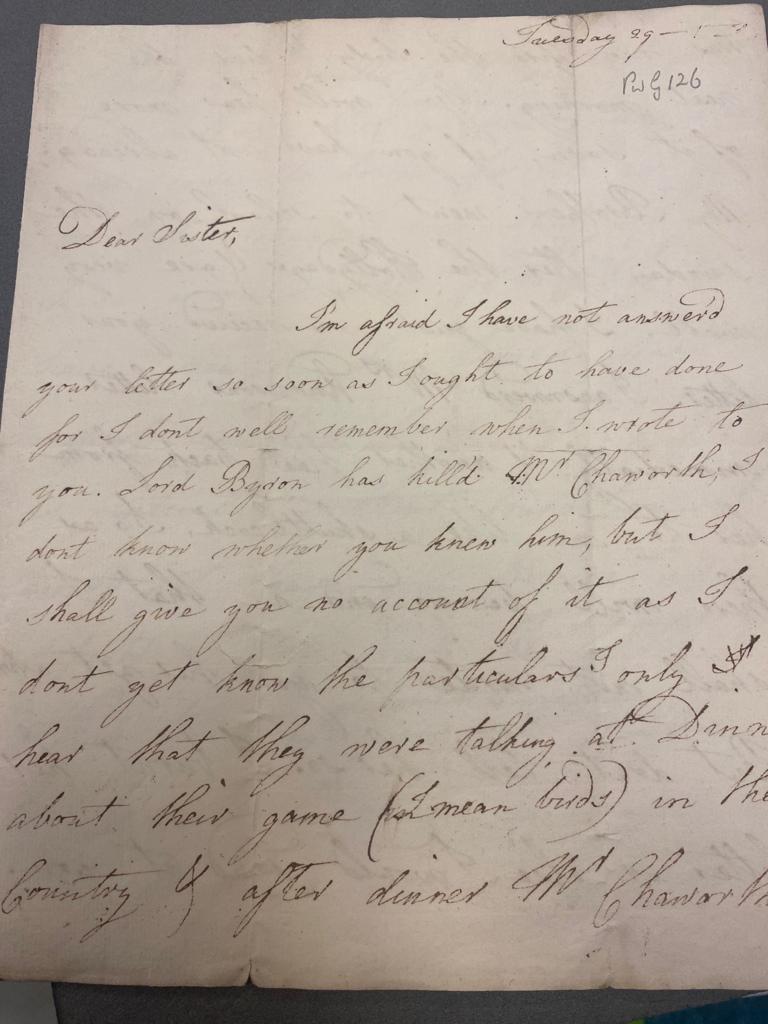 Tuesday 29
Pw G 126
Dear Sister,
I'm afraid I have not answer'd
your letter so soon as I ought to have done
for I dont well remember when I wrote to
you. Lord Byron has kill'd Mr Chaworth, I
dont know whether you knew him, but I
shall give you no account of it as I
dont yet know the particulars I only
hear that they were talking at Dinn
about their game (I mean birds) in the
Country & after dinner Mr Chaworth